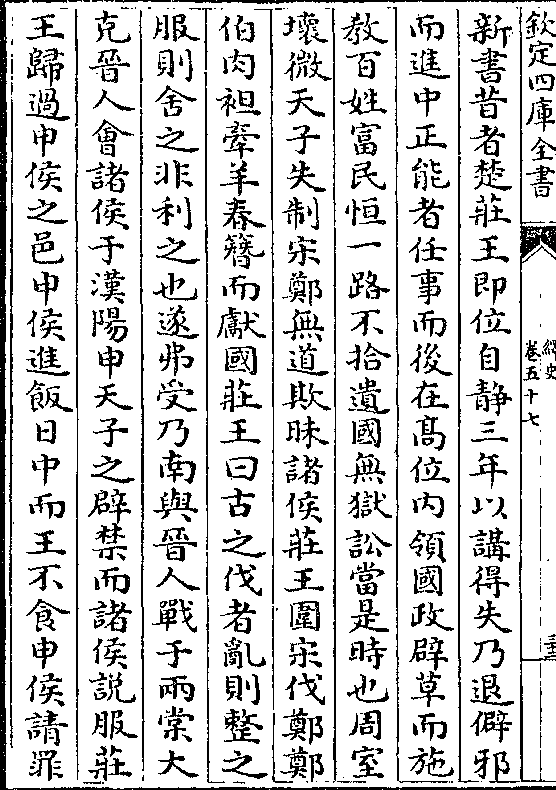 欽定四庫全書
繹史
卷五十七
新書昔者楚莊王即位自静三年以講得失乃退僻邪
而進中正能者任事而後在髙位内領國政辟草而施
教百姓富民恒一路不拾遺國無獄訟當是時也周室
壞微天子失制宋鄭無道欺昧諸侯莊王圍宋伐鄭鄭
伯肉袒牽羊奉簪而獻國莊王曰古之伐者亂則整之
服則舍之非利之也遂弗受乃南與晉人戰于兩棠大
克晉人會諸侯于漢陽申天子之辟禁而諸侯説服莊
王歸過申侯之邑申侯進飯日中而王不食申侯請罪